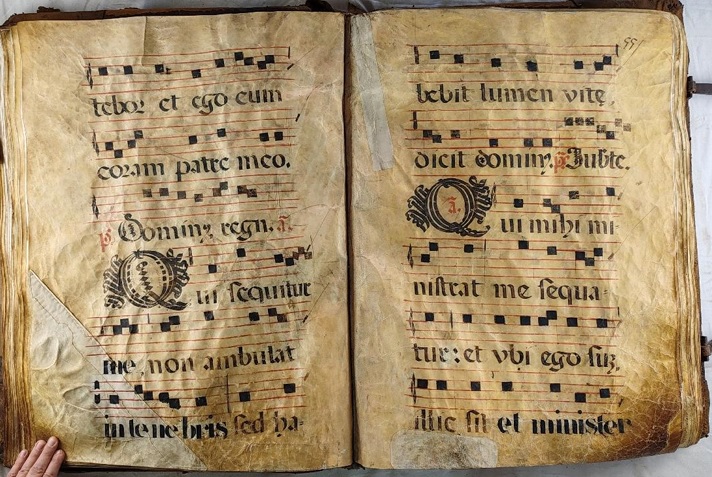 tebor et ego eum
coram patre meo.
ps. Dominꝰ regn. a.
Qui sequitur
me non ambulat
in tenebris sed ha-
55
bebit lumen vitę.
dicit dominꝰ. ps. Iubte.
a.
Qui mihi mi-
nistrat me sequa-
tur: et vbi ego suꝫ,
illic sit et minister